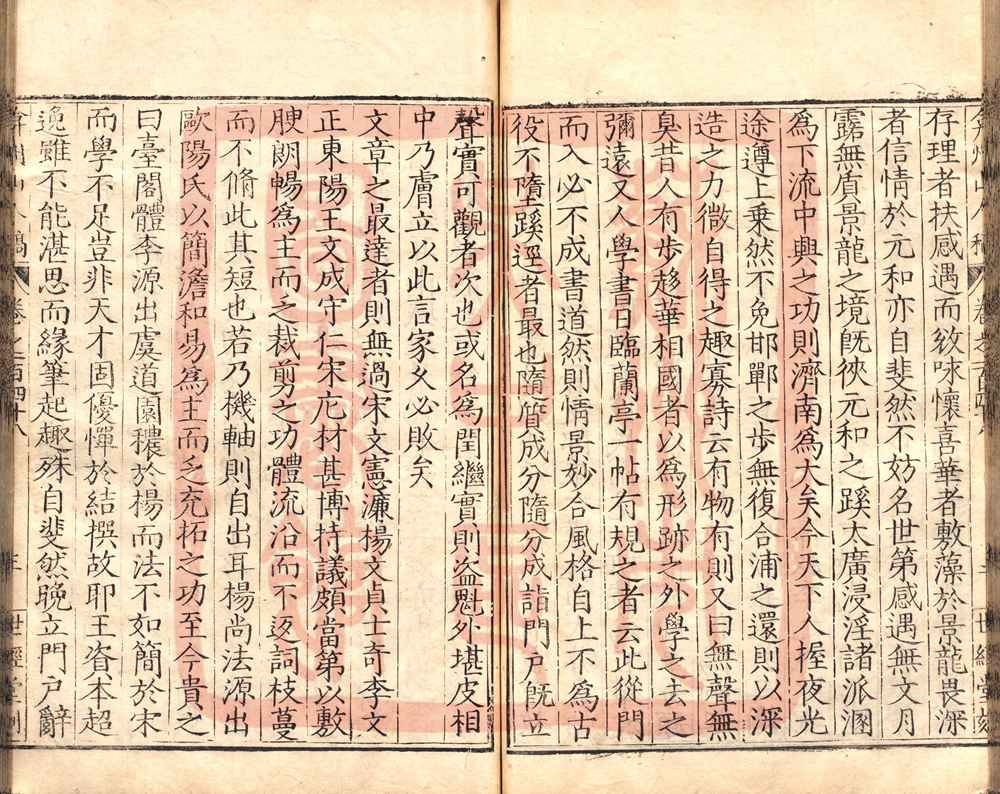 存理者扶感遇而敓咏懷喜華者敷藻於景龍畏深
者信情於元和亦自斐然不妨名世第感遇無文月
露無質景龍之境既狹元和之蹊太廣浸淫諸派溷
爲下流中興之功則濟南爲大矣今天下人握夜光
途遵上乘然不免邯鄲之步無復合浦之還則以深
造之力微自得之趣寡詩云有物有則又曰無聲無
臭昔人有步趍華相國者以爲形跡之外學之去之
彌遠又人學書日臨蘭亭一帖有規之者云此從門
而入必不成書道然則情景妙合風格自上不爲古
役不墮蹊逕者最也隨質成分隨分成詣門户既立
聲實可觀者次也或名爲閏繼實則盜魁外堪皮相
中乃膚立以此言家乆必敗矣
文章之最達者則無過宋文憲濂楊文貞士奇李文
正東陽王文成守仁宋庀材甚博持議頗當第以敷
腴朗暢爲主而乏裁剪之功體流沿而不返詞枝蔓
而不脩此其短也若乃機軸則自出耳楊尚法源出
歐陽氏以簡澹和易爲主而乏充拓之功至今貴之
曰臺閣體李源出虞道園穠於楊而法不如簡於宋
而學不足豈非天才固優憚於結撰故耶王資本超
逸雖不能湛思而緣筆起趣殊自斐然晚立門户辭
山人稿 卷之一百四十八 世經堂刻